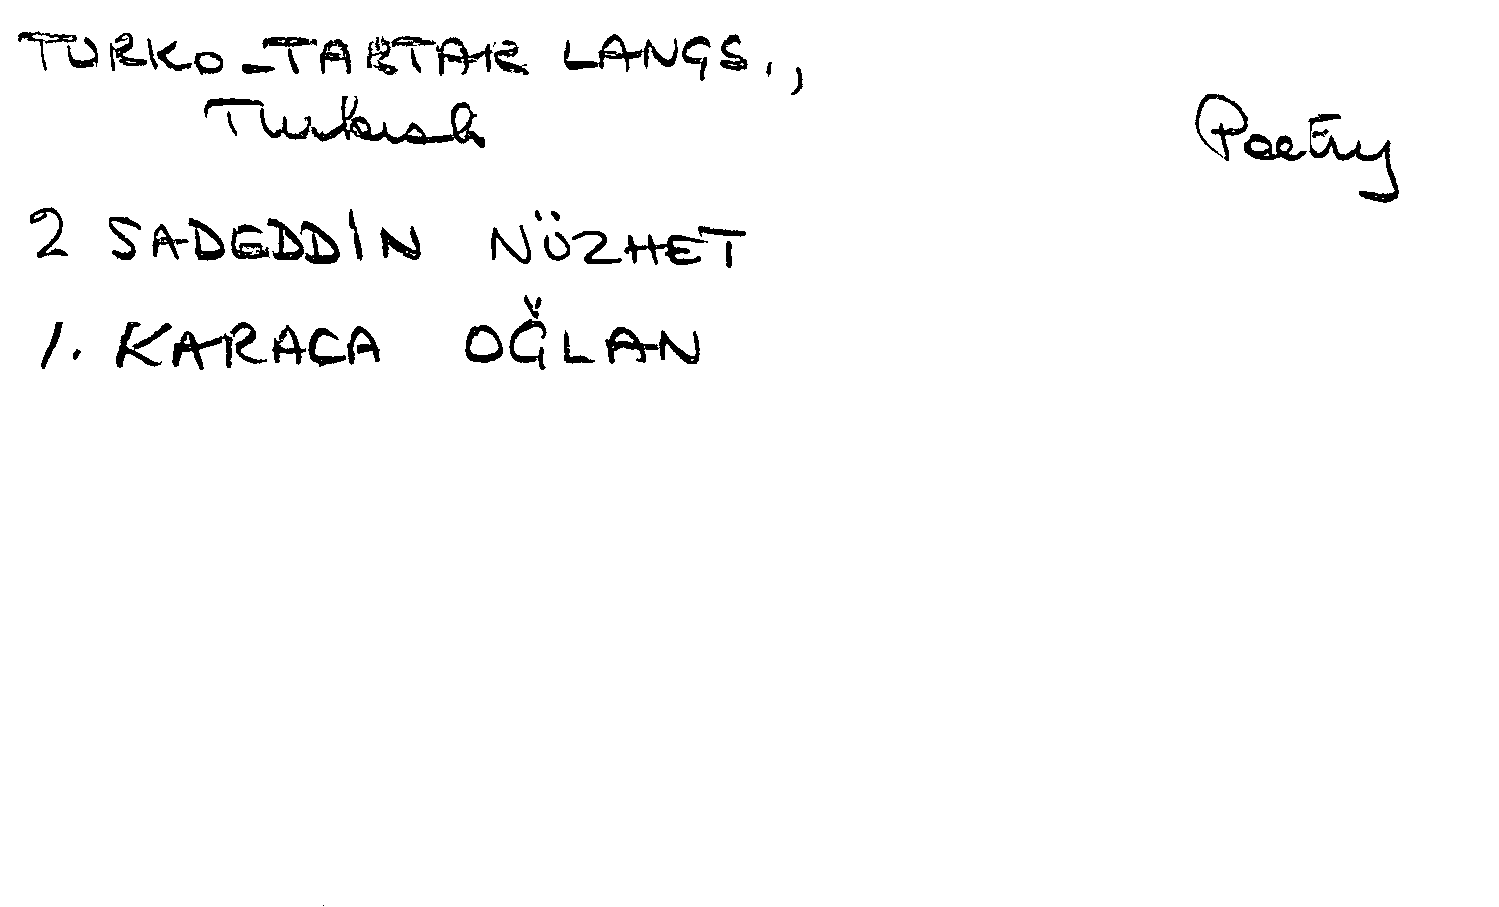 TURKO-TARTAR LANGS.,
Turkish
Poetry
2 SADEDDİN NÜZHET
1. KARACA OĞLAN